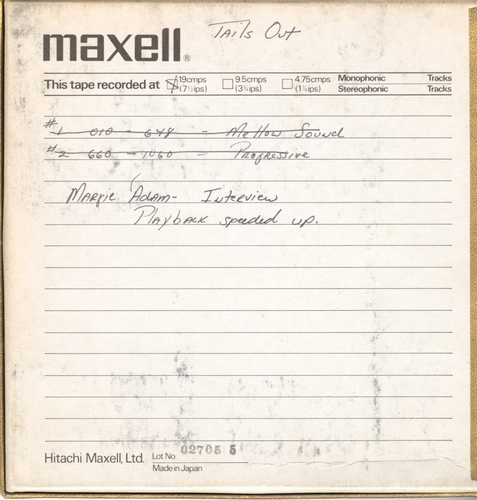 Tails Out
maxell®
This tape recorded at 19cmps (7½ips) 9.5cmps (3¾ips) 4.75cmps (1⅞ips) Monophonic Tracks
Stereophonic Tracks
#1 010 - 648 - Mellow Sound
#2 660 - 1060 - Progressive
Margie Adam - Interview
Playback speeded up.
Hitachi Maxell, Ltd. Lot No. 02705 5
Made in Japan